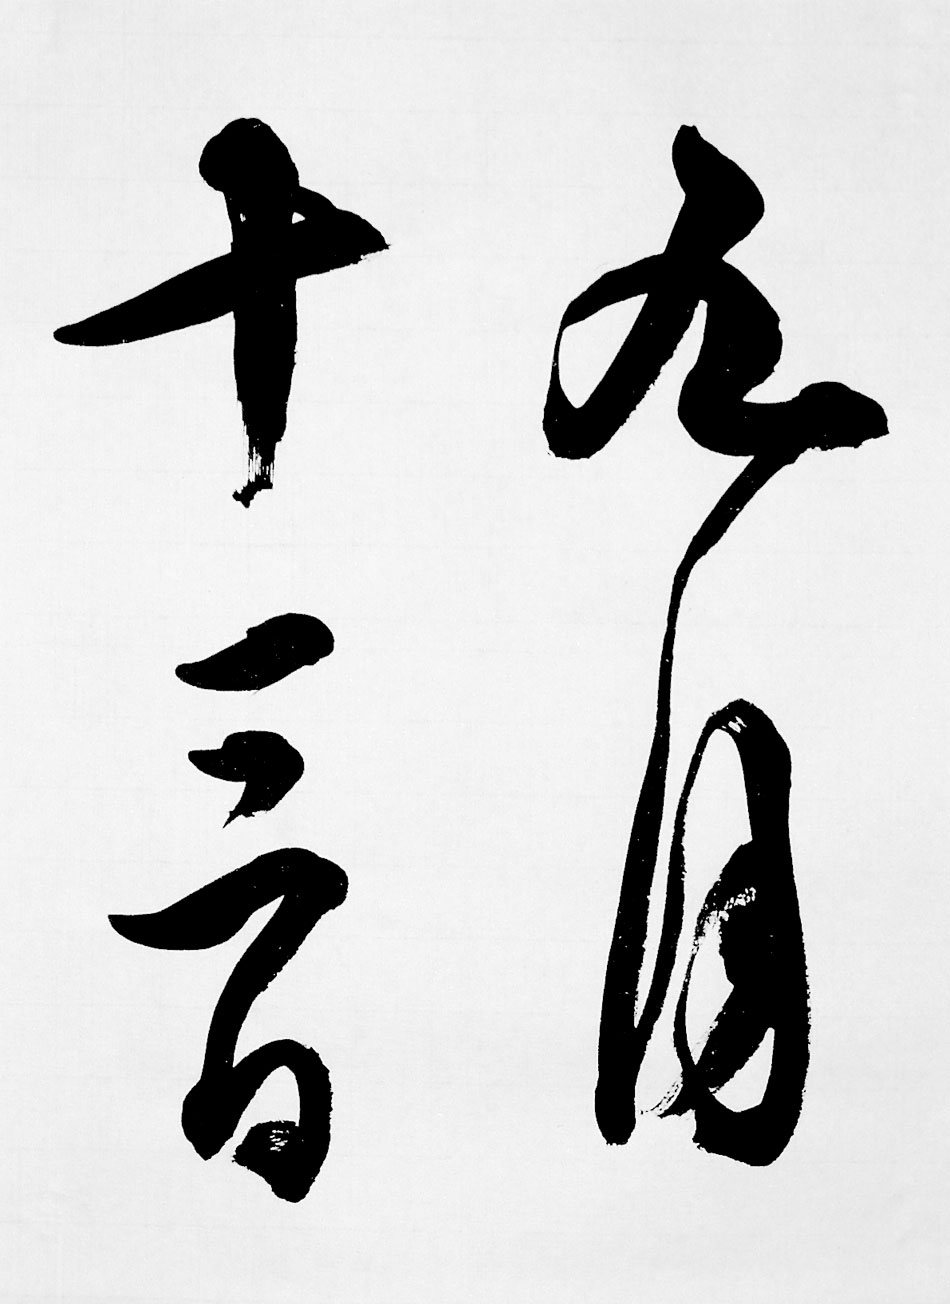 九月
十三日